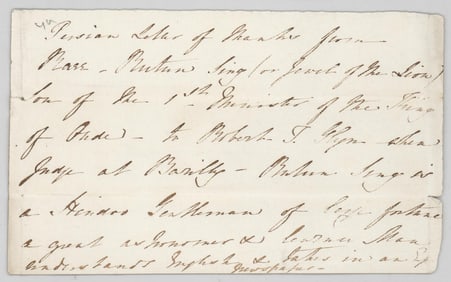 Persian Letter of thanks from
Raee - Rutun Sing (or Jewel of the Lion)
Son of the 1st Minister of the King
of Oude - to Robert T. Glyn - then
Judge at Barilly - Rutun Sing is
a Hindoo Gentleman of large fortune
a great astronomer & learned Man
understands English & takes in an
Newspaper -